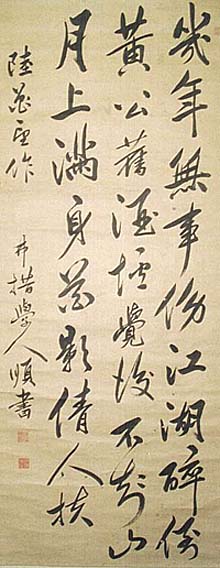 幾年無事傍江湖醉倒
黃公舊酒壚覺後不知山
月上滿身花影倩人扶
陸魯望作
弗措學人順書